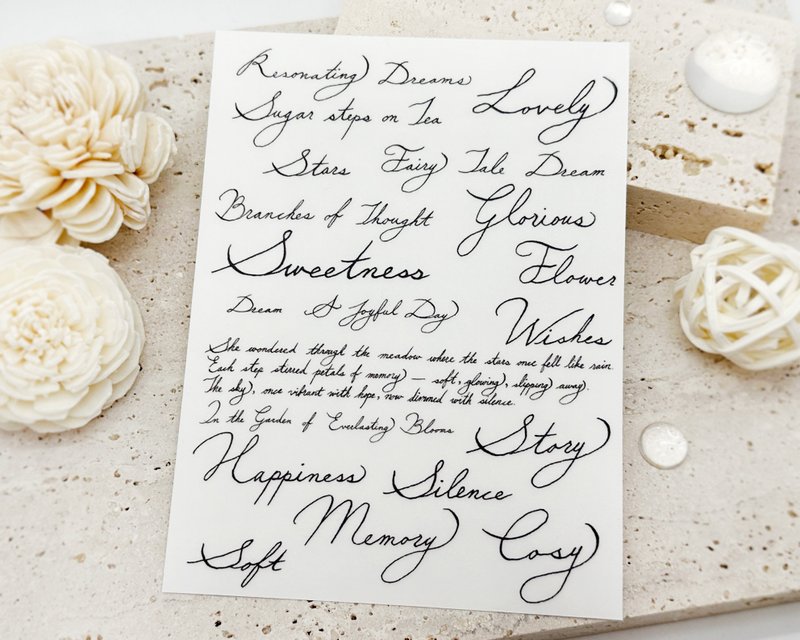 Resonating Dreams
Lovely
Sugar steps on Tea
Stars Fairy Tale Dream
Branches of Thought
Glorious
Sweetness
Flower
Dream A Joyful Day
Wishes
She wondered through the meadow where the stars once fell like rain.
Each step stirred petals of memory — soft, glowing, slipping away.
The sky, once vibrant with hope, now dimmed with silence.
In the Garden of Everlasting Blooms
Story
Happiness
Silence
Memory
Cosy
Soft